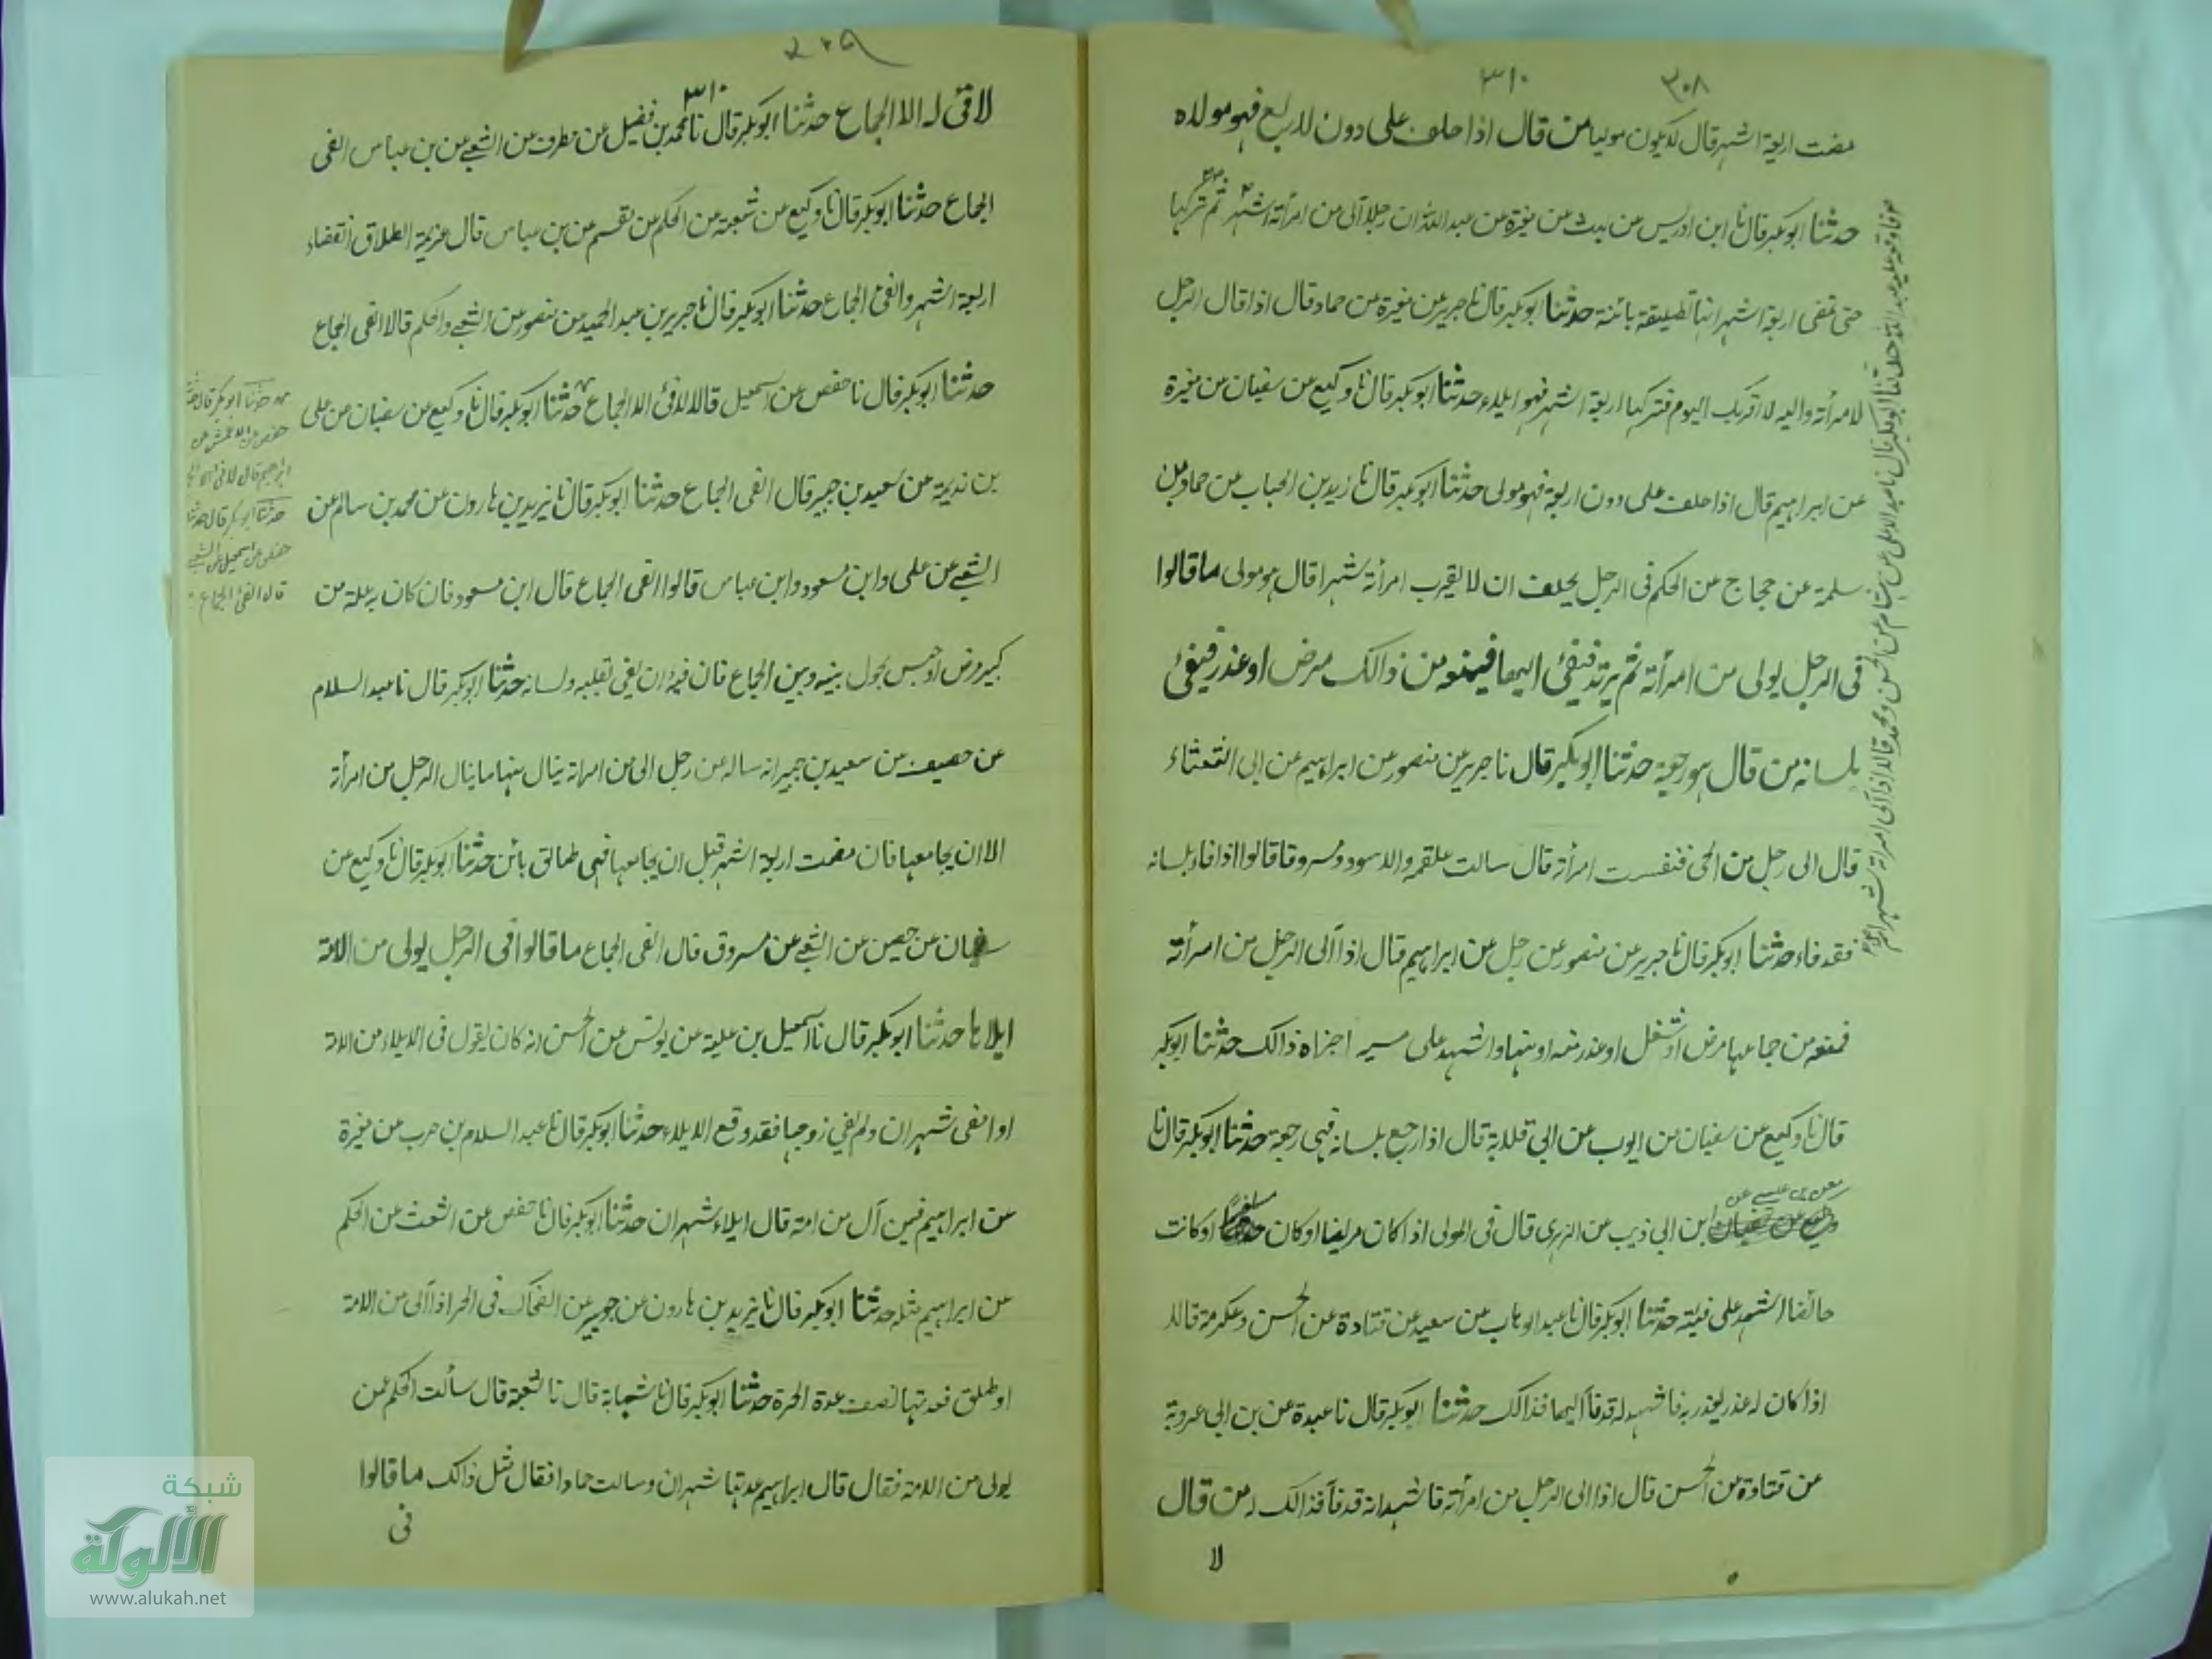 ٣٠٨
٣١٠
مضت اربعة اشهر قال لا يكون موليا من قال اذا حلف على دون الاربع فهو مولاه
حدثنا ابوبكر قال نا ابن ادريس عن ليث عن مغيرة عن عبد الله ان رجلا آلى من امرأته اشهر ثم تركها
حتى تمضى اربعة اشهر انها تطليقة بائنة حدثنا ابوبكر قال نا جرير عن مغيرة عن حماد قال اذا قال الرجل
لامرأته والله لا اقربك اليوم فتركها اربعة اشهر فهو ايلاء حدثنا ابوبكر قال نا وكيع عن سفيان عن مغيرة
عن ابراهيم قال اذا حلف على دون اربعة فهو مولى حدثنا ابوبكر قال نا زيد بن الحباب عن حماد بن
سلمة عن حجاج عن الحكم فى الرجل يحلف ان لا يقرب امرأته شهرا قال هو مولى ما قالوا
فى الرجل يولى من امرأته ثم يريد فيفئ اليها فيمنعه من ذالك مرض او عذر فيفئ
بلسانه من قال هو رجعة حدثنا ابوبكر قال نا جرير عن منصور عن ابراهيم عن ابى الشعثاء
قال الى رجل من الحى فنفست امرأته قال سالت علقمه والاسود ومسروقا قالوا اذا فاء بلسانه
فقد فاء حدثنا ابوبكر قال نا جرير عن منصور عن رجل عن ابراهيم قال اذا آلى الرجل من امرأته
فمنعه من جماعها مرض او شغل او عذر منه او منها واشهد على اجزاه ذالك حدثنا ابوبكر
قال نا وكيع عن سفيان عن ايوب عن ابى قلابة قال اذا رجع بلسانه فهى رجعة حدثنا ابوبكر قال نا
معن بن عيسى عن ابن ابى ذيب عن الزهرى قال فى المولى اذا كان مريضا او كان مسافرا او كانت
حائضا اشهد على فيئه حدثنا ابوبكر قال نا عبد الوهاب عن سعيد عن قتادة عن الحسن وعكرمة قالا
اذا كان له عذر يعذر به فاشهد له قد فآ اليها فذالك حدثنا ابوبكر قال نا عبدة عن بن ابى عروبة
عن قتادة عن الحسن قال اذا الى الرجل من امرأته فاشهد انه قد فآ فذالك له من قال
لا
حدثنا ابوبكر قال نا عبد الاعلى عن هشام عن الحسن ومحمد قالا اذا آلى امرأته شهرا
٣١٠
لا فئ له الا الجماع حدثنا ابوبكر قال نا محمد بن فضيل عن مطرف عن الشعبى عن بن عباس الفى
الجماع حدثنا ابوبكر قال نا وكيع عن شعبة عن الحكم عن مقسم عن بن عباس قال عزيمة الطلاق انقضاء
اربعة اشهر والفئ الجماع حدثنا ابوبكر قال نا جرير بن عبد الحميد عن منصور عن الشعبى والحكم قالا الفى الجماع
حدثنا ابوبكر قال نا حفص عن اسمعيل قالا لا فئ الا الجماع حدثنا ابوبكر قال نا وكيع عن سفيان عن على
بن بذيمة عن سعيد بن جبير قال الفى الجماع حدثنا ابوبكر قال نا يزيد بن هارون عن محمد بن سالم عن
الشعبى عن على وابن مسعود وابن عباس قالوا الفى الجماع قال ابن مسعود فان كان به علة من
كبر او مرض او حبس يحول بينه وبين الجماع فان فيه ان يفى بقلبه ولسانه حدثنا ابوبكر قال نا عبد السلام
عن خصيف عن سعيد بن جبير انه ساله عن رجل الى من امراته ينال منها ما ينال الرجل من امرأته
الا ان يجامعها فان مضت اربعة اشهر قبل ان يجامعها فهى طالق بائن حدثنا ابوبكر قال نا وكيع عن
سفيان عن حصين عن الشعبى عن مسروق قال الفى الجماع ما قالوا فى الرجل يولى من الامة
ايلاها حدثنا ابوبكر قال نا اسمعيل بن علية عن يونس عن الحسن انه كان يقول فى الايلاء من الامة
اذا مضى شهران ولم يفى زوجها فقد وقع الايلاء حدثنا ابوبكر قال نا عبد السلام بن حرب عن مغيرة
عن ابراهيم فيمن آل من امة قال ايلاء شهران حدثنا ابوبكر قال نا حفص عن اشعث عن الحكم
عن ابراهيم مثله حدثنا ابوبكر قال نا يزيد بن هارون عن جويبر عن الضحاك فى الحر اذا آلى من الامة
او طلق فعدتها نصف عدة الحرة حدثنا ابوبكر قال نا شبابة قال نا شعبة قال سألت الحكم عمن
يولى من الامة فقال قال ابراهيم عدتها شهران وسالت حمادا فقال مثل ذالك ما قالوا
فى
حدثنا ابوبكر قال حدثنا
حفص عن الاعمش عن
ابراهيم قال لا فئ الا
حدثنا ابوبكر قال حدثنا
حفص عن اسمعيل عن الشعبى
قال الفئ الجماع
شبكة
الألوكة
www.alukah.net